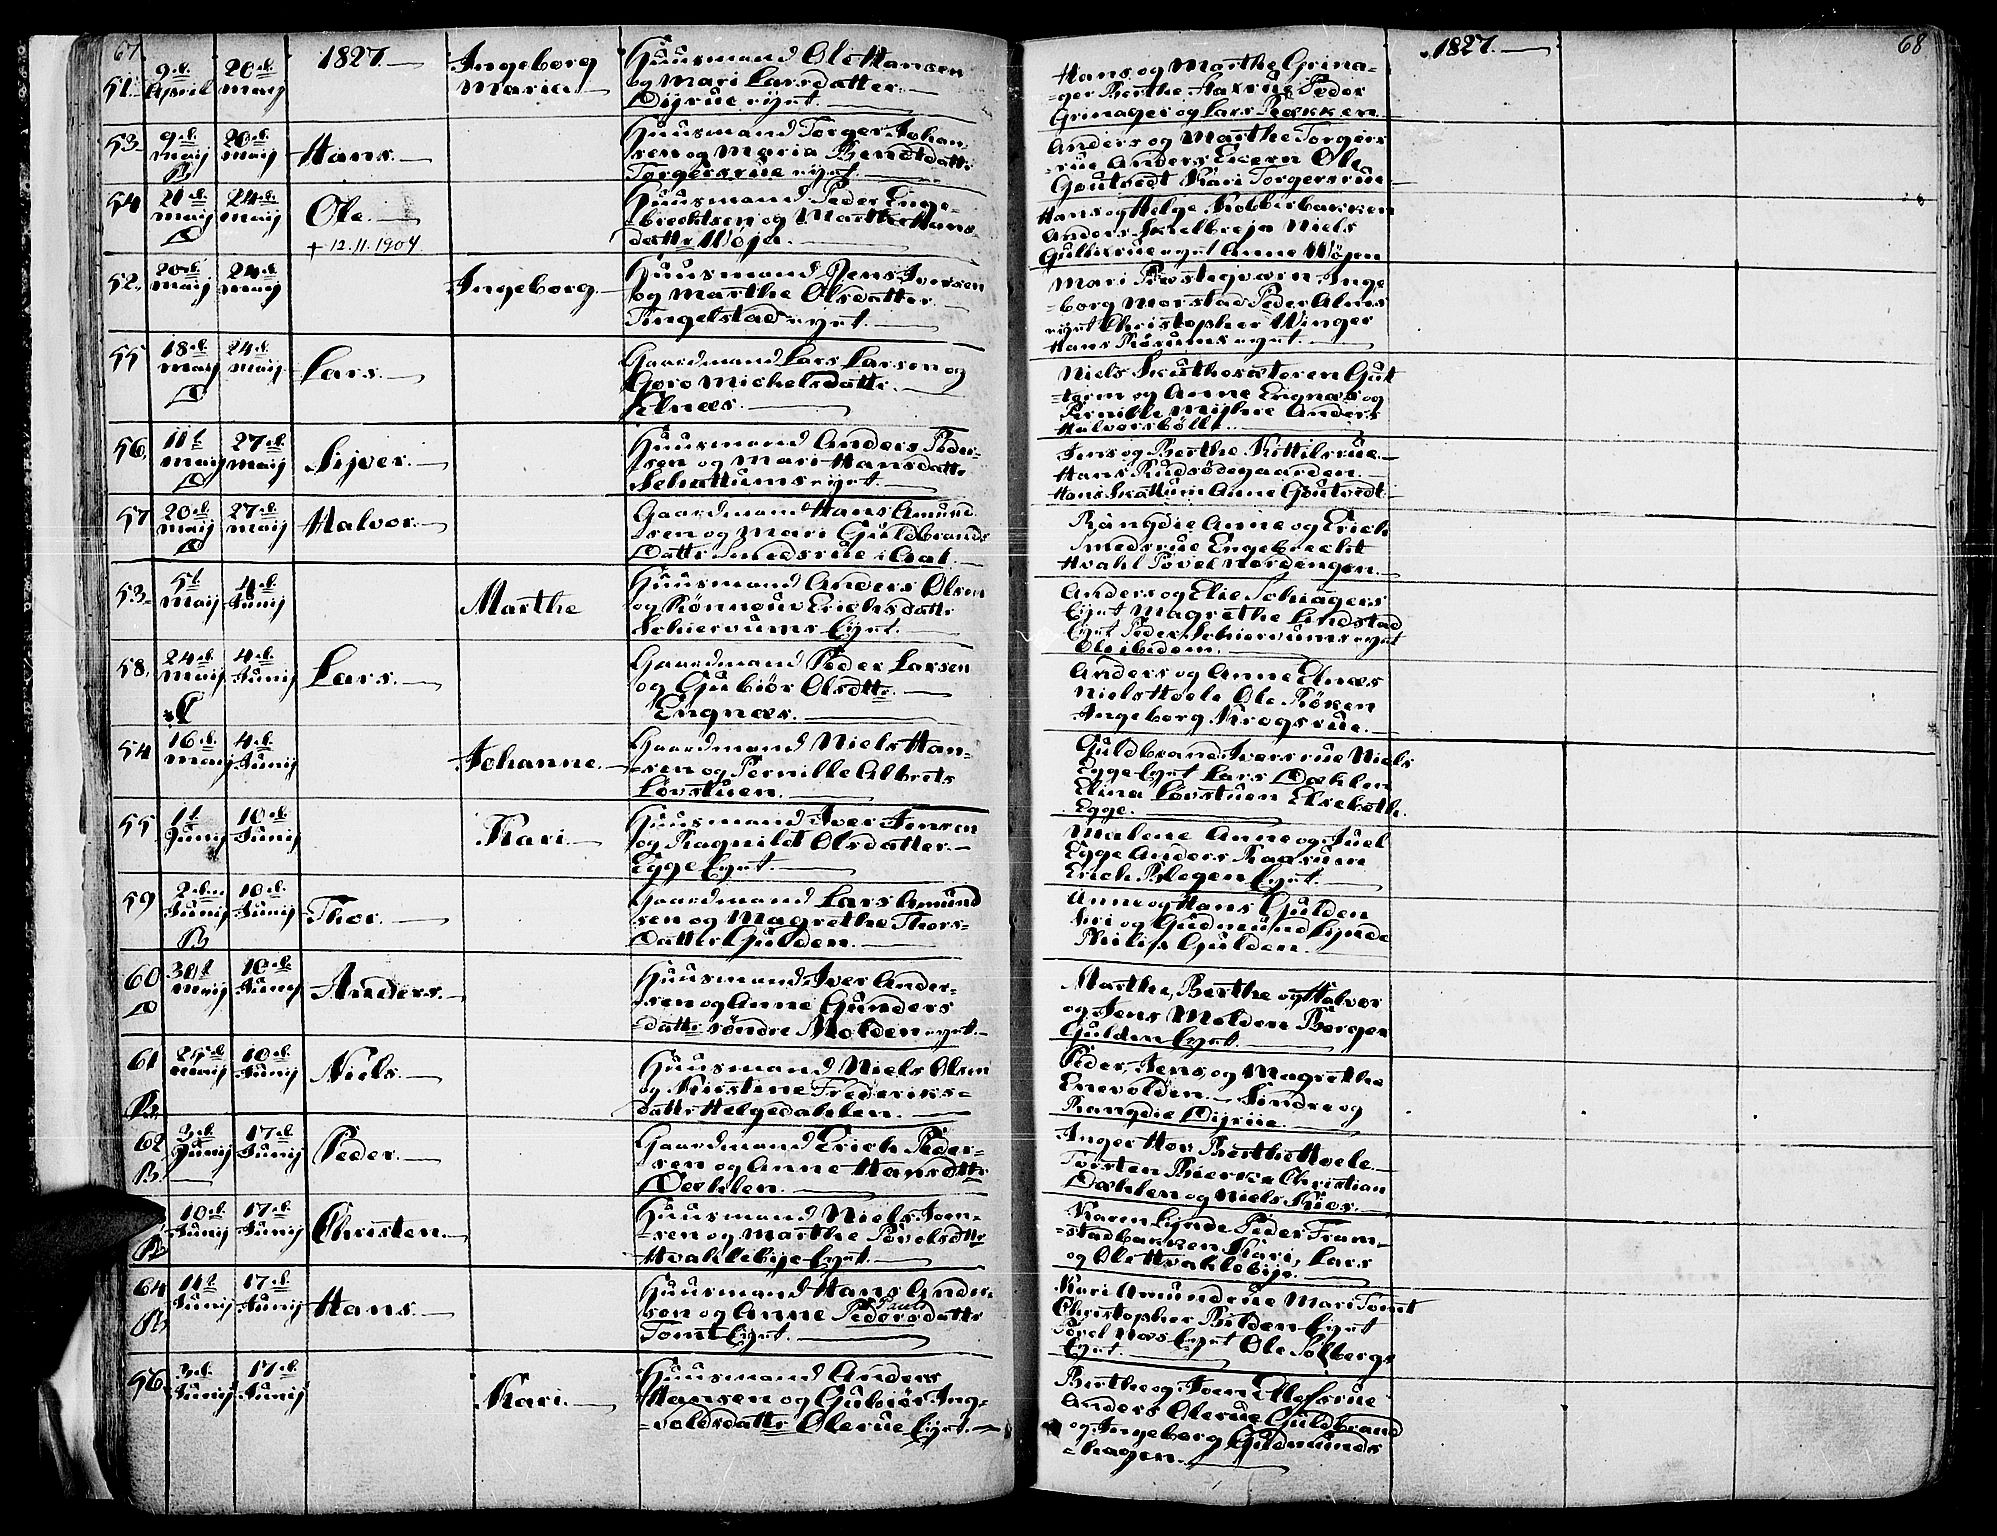 67
1827.
51. 9d. April 20d. maij Ingeborg Maria. Huusmand Ole Hansen
og Mari Larsdatter.
Dijrue eyet.
53. 9d. maij 20d. maij Hans. Huusmand Torger Johan-
sen og Maria Bendtdattr
Torgersrue eyet.
54 21d. maij 24d. maij Ole. Huusmand Peder Enge-
+ 12.11.1904.
brecktsen og Marthe Hans
dattr Wøja.
52. 20d. maij 24d. maij Ingeborg. Huusmand Jens Iversen
og Marthe Olsdatter.
Tingelstad eyet.
55 18d. maij 24d. maij Lars. Gaardmand Lars Larsen og
Goro Michelsdattr.
Elnæs.
56. 11t maij 27d. maij Sijver. Huusmand Anders Peder-
sen og Mari Hansdattr
Schattums eyet.
57 20d. maij 27d. maij Halvor. Gaardmand Hans Amund
sen og Mari Guldbrands
Dattr Smedsrue i Aal.
53. 5t maij 4d. Junij Marthe Huusmand Anders Olsen
og Rønnouv Erichsdattr
Schiervums Eyet.
58. 24d. maij 4d. Junij Lars. Gaardmand Peder Larsen
og Gubiør Olsdttr.
Engnæs.
54 16d. maij 4d. Junij Johanne. Gaardmand Niels Han-
sen og Pernille Albrets
Løvstuen.
55 1t Junij 10d. Junij Kari. Huusmand Iver Jensen
og Ragnild Olsdatter.
Egge Eyet.
59 2d. Junij 10d. Junij Thor. Gaardmand Lars Amund
sen og Magrethe Thors-
Dattr Gulden.
60 30t maij 10d. Junij Anders. Huusmand Iver Ander-
sen og Anne Gunders
dattr søndre Molden eyet.
61 25d. maij 10d. Junij Niels. Huusmand Niels Olsen
og Kirstine Frederiks-
dattr Helgedahlen.
62 3d. Junij 17d. Junij Peder. Gaardmand Erich Peder-
sen og Anne Hansdttr
Dæhlen.
10d. Junij 17d. Junij Christen. Huusmand Niels Jon-
sen og Marthe Povelsdttr
Hvalebije Eyet.
64 11t Junij 17d. Junij Hans. Huusmand Hans Andr
Pauls
sen og Anne Pedersdattr
Tomt Eyet.
56 3d. Junij 17d. Junij Kari. Huusmand Anders
Hansen og Gubiør Ing-
volds­dattr Olerue Eyet.
68
1827.
Hans og Marthe Grina-
ger Berthe Peder
Grinager og Lars Bækken
Anders og Marthe Torgers
rue Anders Ole
Goutvedt Kari Torgersrue
Hans og Helge Kobberbakken
Anders Skielbreja Niels
eyet Anne Wøjen
Mari Inge
borg Morstad Peder Alms
eyet Christopher Winger
Hans Røsums eyet.
Niels Gut
torm og Anne Engnæs og
Pernille Anders
Halvorsbølle.
Jens og Berthe Kittilsrue.
Hans Rudsødegaarden.
Hans Skattum Anne Goutvedt
Rangdie Anne og Erich
Smedsrue Engebrecht
Hvahl Povel Nordengen.
Anders og Elie Schiagers
Eyet Magrethe Lindstad
Eyet Peder Schiervums eyet
Ole ibedem.
Anders og Anne Elnæs
Niels Hvele Ole Røken
Ingeborg Krogsrue.
Guldbrand Iversrue Niels
Egge Eyet Lars Dæhlen
Elina Løvstuen Elsebeth
Egge.
Malene Anne og Juel
Egge Anders Raasum
Erich Blegen Eyet.
Anne og Hans Gulden
Siri og Gudmund Lynde
Philip Gulden.
Marthe, Berthe og Halvor
og Jens Molden Børger
Gulden Eyet.
Peder, Jens, og Magrethe
Enevolden. Sindre og
Rangdie Dijrue.
Inger Hov Berthe Hvele
Torsten Bierke Christian
Dæhlen og Niels Kios.
Karen Lynde Peder Fram-
stadbakken Kari, Lars
og Ole Hvalebije.
Kari Amundrue Mari Tomt
Christopher Bilden Eyet
Povel Næs Eyet Ole Solbergs
Eyet.
Berthe og Jon Ellefsrue
Anders Olerue Guldbrand
og Ingeborg Guldmunds
hagen.